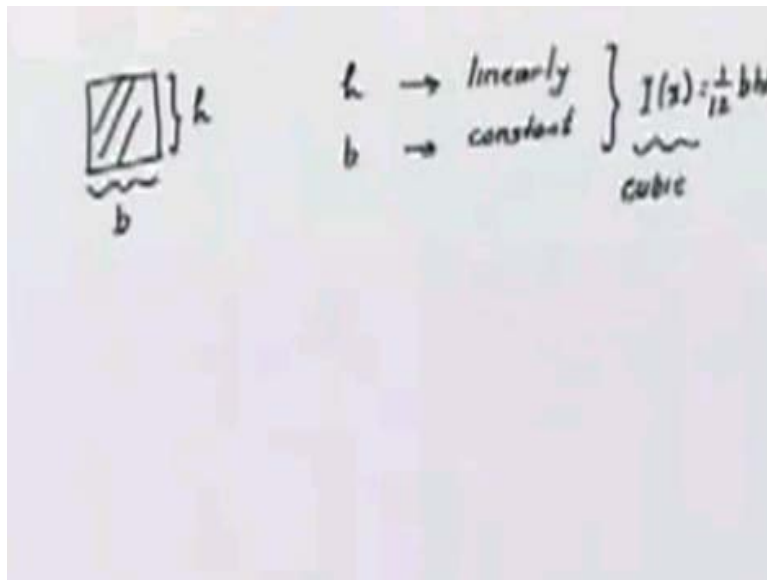 h
b
h → linearly
b → constant
} I(x) = 1/12 bh
cubic